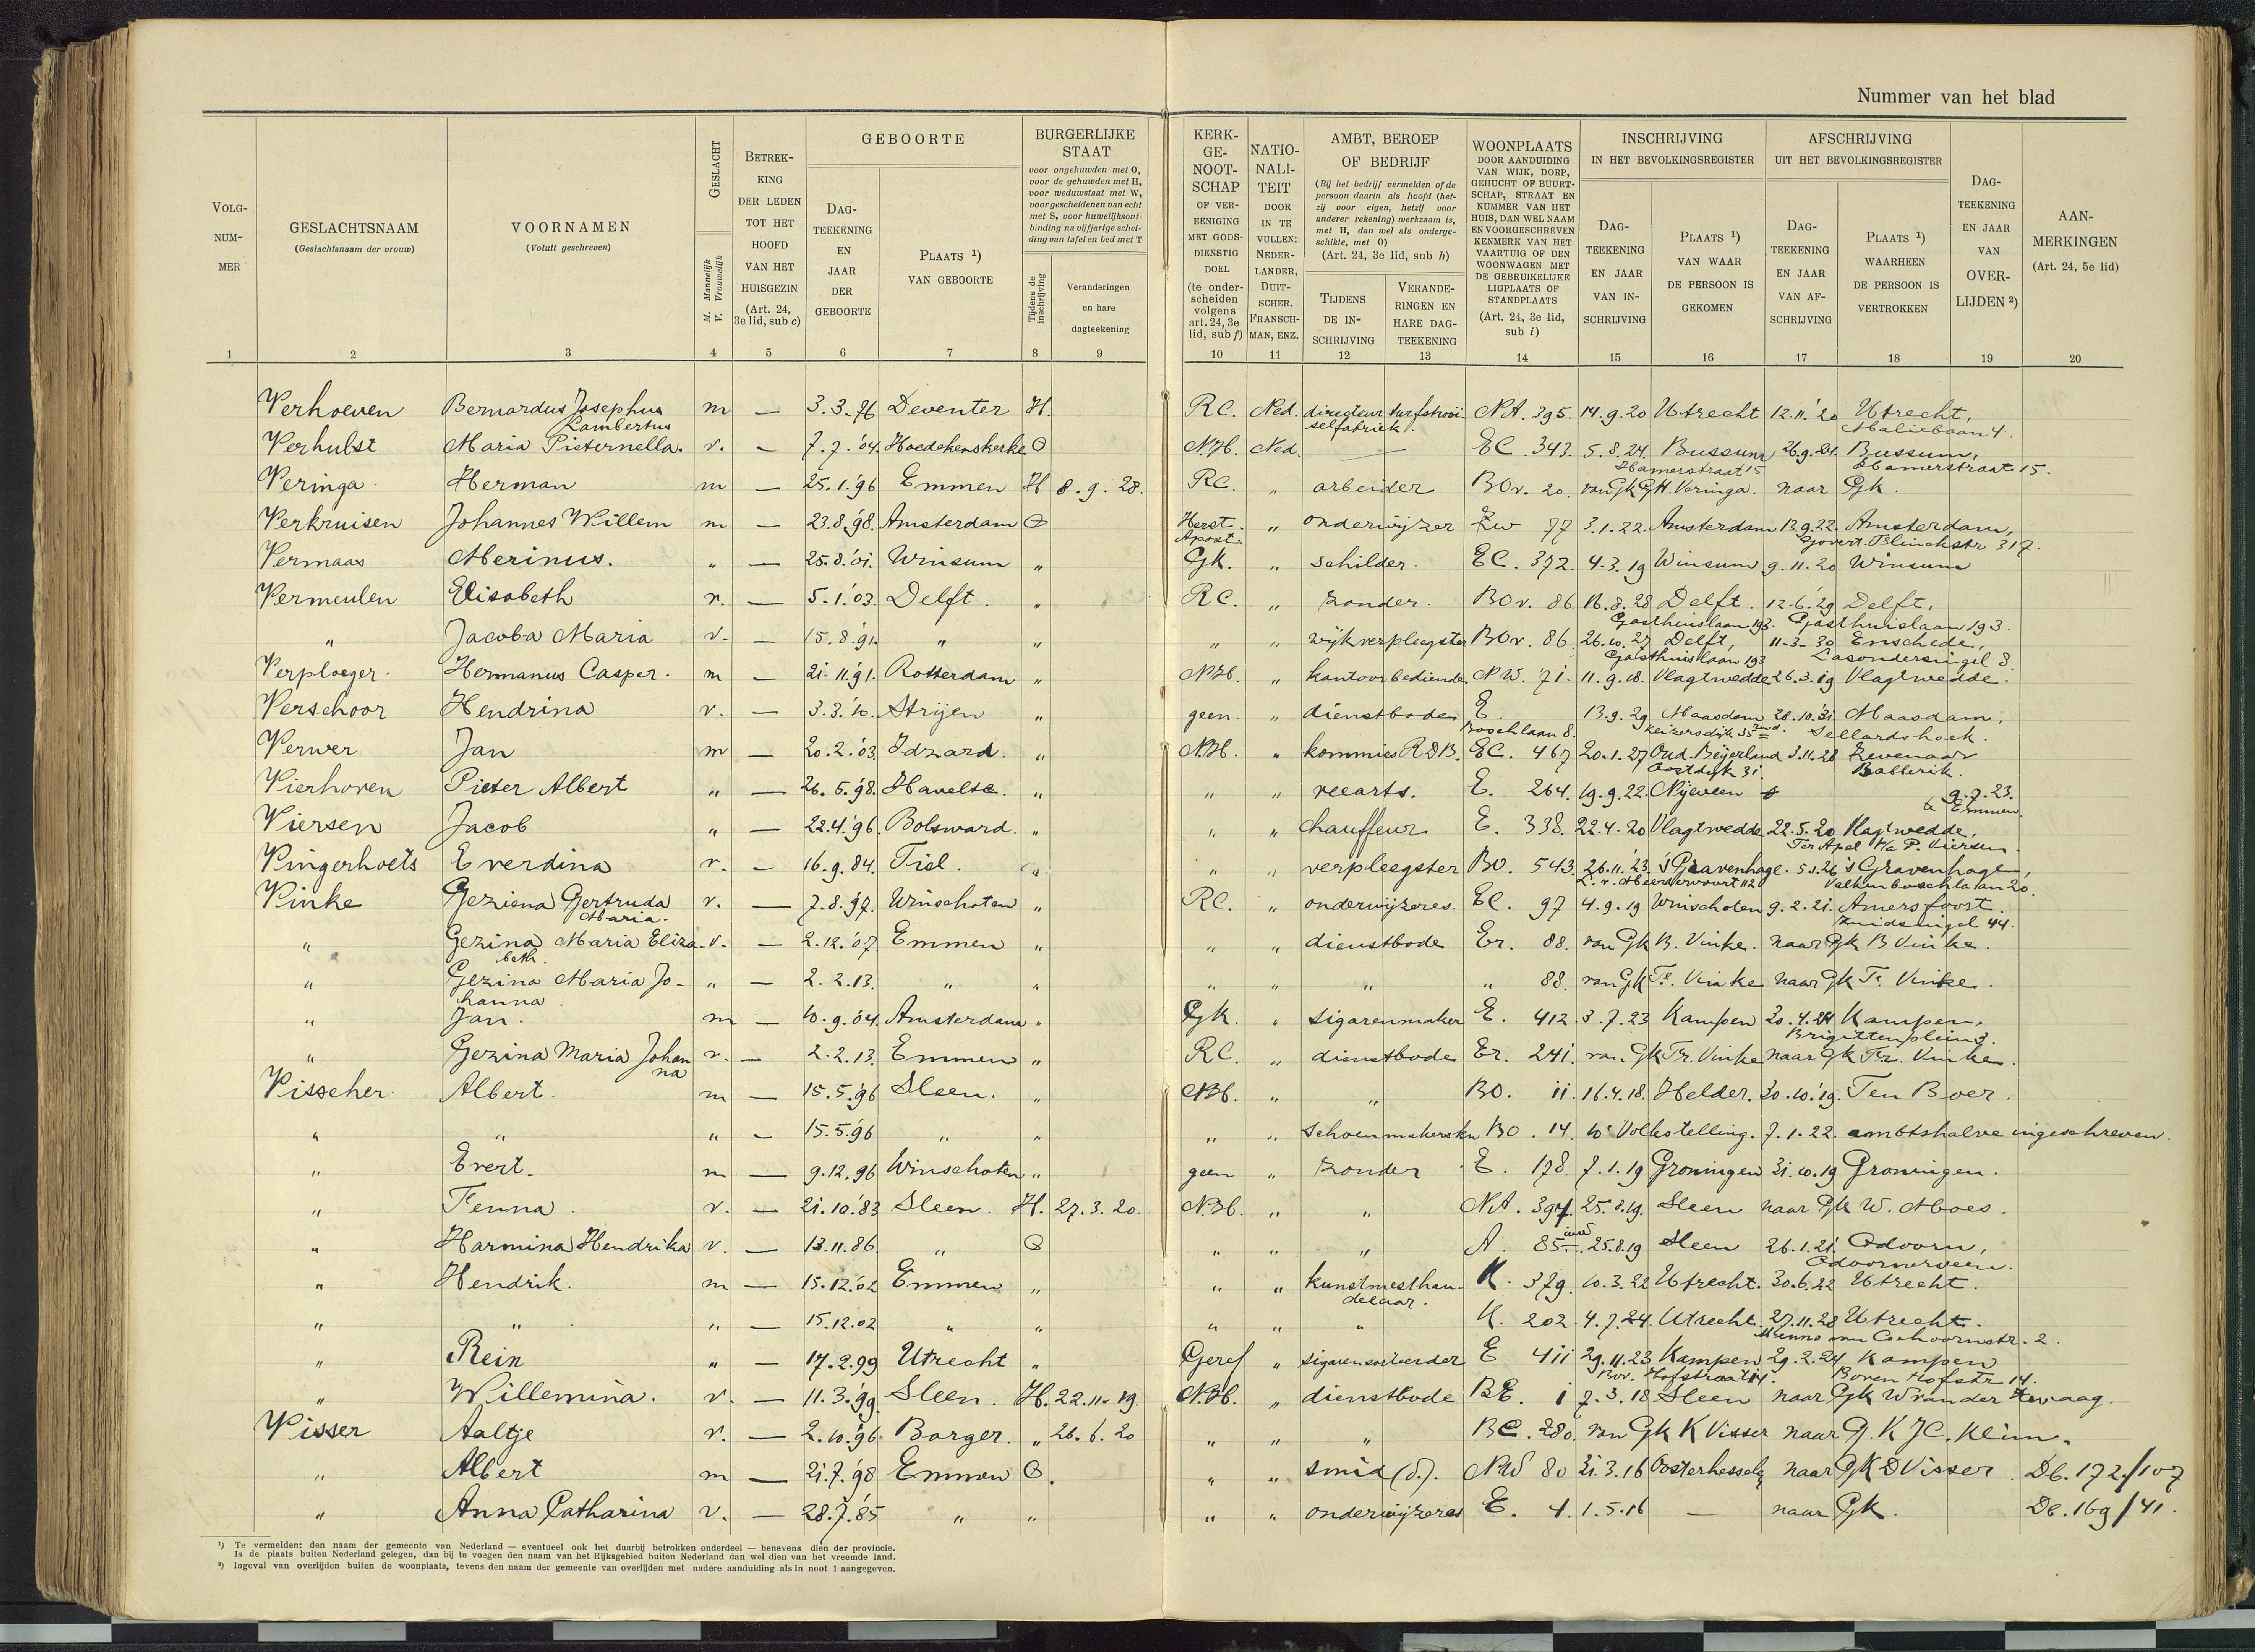 Nummer van het blad
VOLG-NUM-MER GESLACHTSNAAM (Geslachtsnaam der vrouw) VOORNAMEN (Voluit geschreven) GESLACHT M. Mannelijk V. Vrouwelijk BETREK-KING DER LEDEN TOT HET HOOFD VAN HET HUISGEZIN (Art. 24, 3e lid, sub c) GEBOORTE DAG-TEEKENING EN JAAR DER GEBOORTE PLAATS ¹) VAN GEBOORTE BURGERLIJKE STAAT voor ongehuwden met O, voor de gehuwden met H, voor weduwstaat met W, voor gescheidenen van echt met S, voor huwelijksont-binding na vijfjarige schei-ding van tafel en bed met T Tijdens de inschrijving Veranderingen en hare dagteekening
KERK-GE-NOOT-SCHAP OF VER-EENIGING MET GODS-DIENSTIG DOEL (te onder-scheiden volgens art. 24, 3e lid, sub f) NATIO-NALI-TEIT DOOR IN TE VULLEN: NEDER-LANDER, DUIT-SCHER, FRANSCH-MAN, ENZ. AMBT, BEROEP OF BEDRIJF (Bij het bedrijf vermelden of de persoon daarin als hoofd (het-zij voor eigen, hetzij voor anderer rekening) werkzaam is, met H, dan wel als onderge-schikte, met O) (Art. 24, 3e lid, sub h) TIJDENS DE IN-SCHRIJVING VERANDE-RINGEN EN HARE DAG-TEEKENING WOONPLAATS DOOR AANDUIDING VAN WIJK, DORP, GEHUCHT OF BUURT-SCHAP, STRAAT EN NUMMER VAN HET HUIS, DAN WEL NAAM EN VOORGESCHREVEN KENMERK VAN HET VAARTUIG OF DEN WOONWAGEN MET DE GEBRUIKELIJKE LIGPLAATS OF STANDPLAATS (Art. 24, 3e lid, sub i) INSCHRIJVING IN HET BEVOLKINGSREGISTER DAG-TEEKENING EN JAAR VAN IN-SCHRIJVING PLAATS ¹) VAN WAAR DE PERSOON IS GEKOMEN AFSCHRIJVING UIT HET BEVOLKINGSREGISTER DAG-TEEKENING EN JAAR VAN AF-SCHRIJVING PLAATS ¹) WAARHEEN DE PERSOON IS VERTROKKEN DAG-TEEKENING EN JAAR VAN OVER-LIJDEN ²) AAN-MERKINGEN (Art. 24, 5e lid)
1 2 3 4 5 6 7 8 9 10 11 12 13 14 15 16 17 18 19 20
Verhoeven Bernardus Josephus Lambertus m — 3.3.76 Deventer H. RC. Ned. directeur turfstrooiselfabriek. NA. 395. 14.9.20 Utrecht 12.11.'20 Utrecht, Maliebaan 4.
Verhulst Maria Pieternella. v. — 7.7.'04. Hoedekenskerke O N.H. Ned. — EC. 343. 5.8.24. Bussum Hamerstraat 15 26.9.24. Bussum, Hamerstraat 15.
Veringa. Herman m — 25.1.'96 Emmen H 8.9.28. RC. " arbeider BOv. 20. van Gk GH. Veringa. naar Gk.
Verkruisen Johannes Willem m — 23.8.'98. Amsterdam O Herst. Apost. " onderwijzer Zw 77 3.1.22. Amsterdam 13.9.22. Amsterdam, Govert Flinckstr 317.
Vermaas Merinus. " — 25.8.'01. Winsum " Gk. " schilder. EC. 372. 4.3.19 Winsum 9.11.20 Winsum
Vermeulen Elisabeth v. — 5.1.'03. Delft. " RC. " zonder. BOv. 86 16.8.28 Delft. Gasthuislaan 193. 12.6.'29 Delft, Gasthuislaan 193.
" Jacoba Maria v. — 15.8.'91. " " " " wijkverpleegster BOv. 86. 26.10.27 Delft, Gasthuislaan 193 11-3-30 Enschede, Lasondersingel 8.
Verploeger. Hermanus Casper. m — 21.11.'91. Rotterdam " N.H. " kantoorbediende NW. 71. 11.9.18. Vlagtwedde 26.3.19 Vlagtwedde.
Verschoor Hendrina v. — 3.3.'10. Strijen " geen. " dienstbode E. Boschlaan 8. 13.9.29 Maasdam Keizersdijk 35 rood. 28.10.'31 Maasdam, Sellardshoek.
Verwer Jan m — 20.2.'03 Idzard. " N.H. " kommies RDB. EC. 467 20.1.27 Oud. Beijerland Oostdijk 31. 3.11.28 Zevenaar Babberik.
Vierhoven Pieter Albert " — 26.5.'98. Havelte. " " " veearts. E. 264. 19.9.22. Nijeveen 9.7.23. te Emmen.
Viersen Jacob " — 22.4.'96. Bolsward. " " " chauffeur E. 338. 22.4.20 Vlagtwedde 22.5.20 Vlagtwedde, Ter Apel P/a P. Viersen.
Vingerhoets Everdina v. — 16.9.84. Tiel. " " " verpleegster BO. 543. 26.11.'23. 's Gravenhage. L. v. Meerdervoort 112 5.1.26 's Gravenhage, Valkenboschlaan 20.
Vinke Geziena Gertruda Maria. v. — 7.8.'97. Winschoten " RC. " onderwijzeres. EC. 97 4.9.19 Winschoten 9.2.21. Amersfoort. Zuidsingel 44.
" Gezina Maria Elizabeth. v. — 2.12.'07 Emmen " " " dienstbode Er. 88. van Gk B. Vinke. naar Gk B Vinke.
" Gezina Maria Johanna. " — 2.2.13. " " " " " " 88. van Gk Fr. Vinke naar Gk Fr. Vinke.
" Jan. m — 10.9.'04. Amsterdam " Gk. " sigarenmaker E. 412. 3.7.23 Kampen 30.4.24 Kampen, Brigittenplein 3.
" Gezina Maria Johanna v. — 2.2.13. Emmen " RC. " dienstbode Er. 241. van Gk Fr. Vinke naar Gk Fr. Vinke.
Visscher. Albert. m — 15.5.'96 Sleen. " N.H. " " BO. 11. 16.4.18. Helder. 30.10.'19. Ten Boer.
" " " — 15.5.'96 " " " " schoenmakerskn BO. 14. 10e Volkstelling. 7.1.22. ambtshalve ingeschreven.
" Evert. m — 9.12.96 Winschoten " geen " zonder E. 178. 7.1.19 Groningen 31.10.19 Groningen.
" Fenna. v. — 21.10.'83 Sleen. H. 27.3.20. N.H. " " NA. 397. 25.8.19. Sleen naar Gk W. Moes.
" Harmina Hendrika v. — 13.11.86. " O " " " A. 85 25.8.19 Sleen 26.1.21. Odoorn, Odoornerveen.
" Hendrik. m — 15.12.'02 Emmen " " " kunstmesthandelaar. K. 379. 10.3.22 Utrecht. 30.6.22 Utrecht.
" " " — 15.12.02 " " " " " K. 202. 4.7.24. Utrecht. 27.11.28 Utrecht. Menno van Coehoornstr. 2.
" Rein " — 17.2.99 Utrecht " Geref " sigarensorteerder E 411 29.11.23 Kampen Bov. Hofstraat 14. 29.2.24 Kampen Boven Hofstr 14.
" Willemina. v. — 11.3.'99. Sleen. H. 22.11.19. N.H. " dienstbode BE. 1 7.3.18 Sleen naar Gk W van der Zwaag.
Visser Aaltje v. — 2.10.'96. Borger. " 26.6.20 " " " BC. 280. van Gk K Visser naar G.K JC. Klim.
" Albert m — 21.7.'98 Emmen O. " " smid (d). NW 80 31.3.16 Oosterhesselg naar Gk D Visser. Db. 172/107
" Anna Catharina v. — 28.7.'85 " " " " onderwijzeres E. 4. 1.5.16 — naar Gk. Db. 169/41.
¹) Te vermelden: den naam der gemeente van Nederland — eventueel ook het daarbij betrokken onderdeel — benevens dien der provincie.
Is de plaats buiten Nederland gelegen, dan bij te voegen den naam van het Rijksgebied buiten Nederland dan wel dien van het vreemde land.
²) Ingeval van overlijden buiten de woonplaats, tevens den naam der gemeente van overlijden met nadere aanduiding als in noot 1 aangegeven.